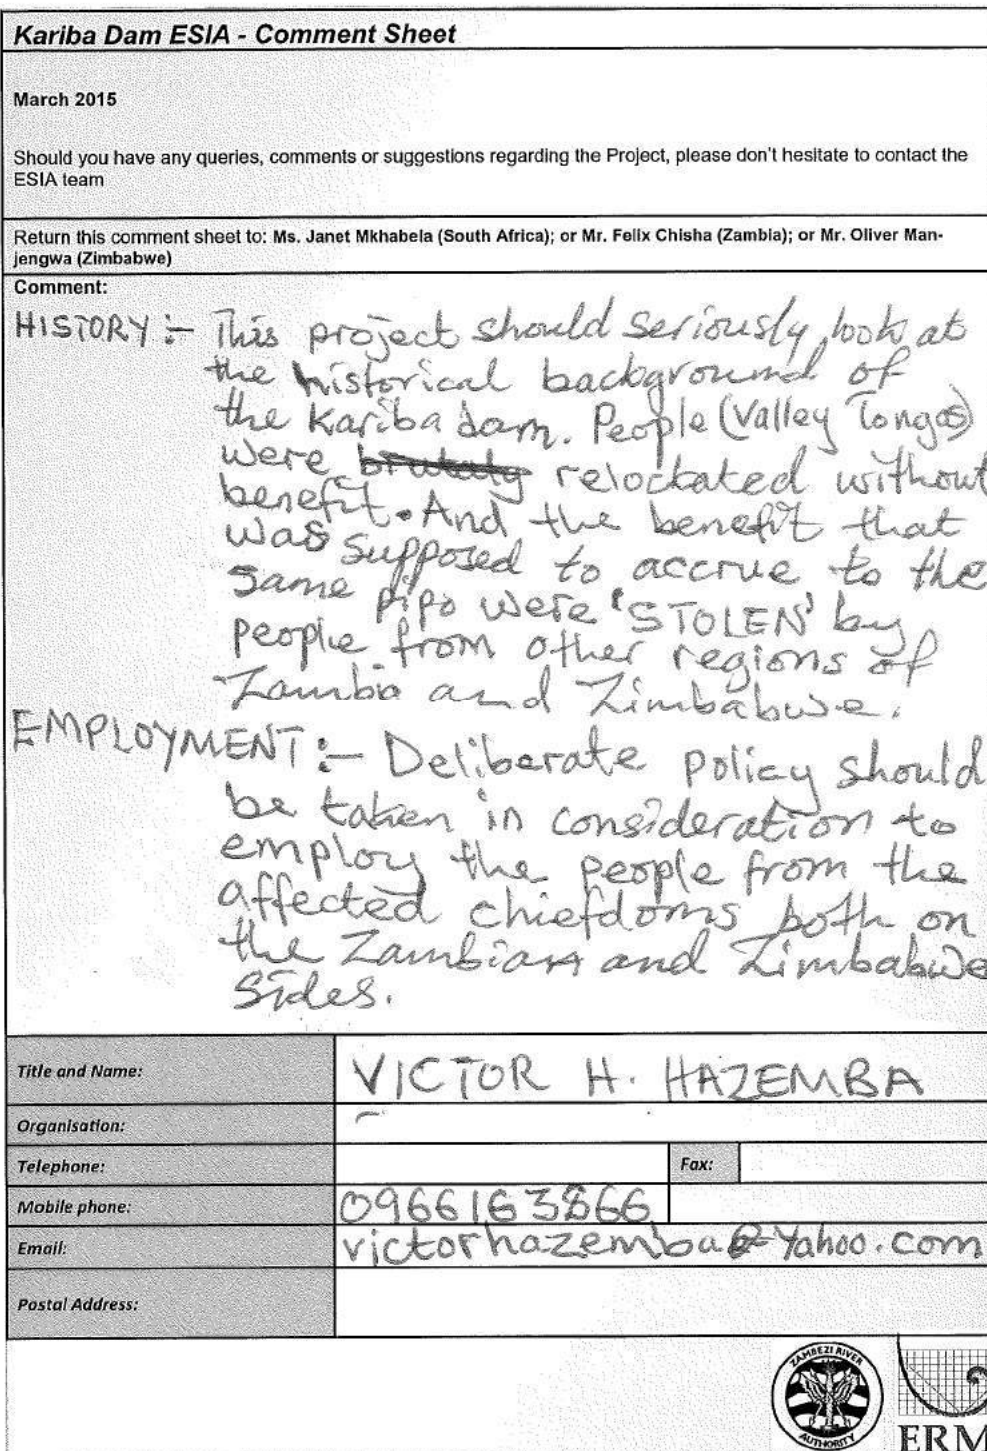 Kariba Dam ESIA - Comment Sheet
March 2015
Should you have any queries, comments or suggestions regarding the Project, please don't hesitate to contact the
ESIA team
Return this comment sheet to: Ms. Janet Mkhabela (South Africa); or Mr. Felix Chisha (Zambia); or Mr. Oliver Man-
jengwa (Zimbabwe)
Comment:
HISTORY :- This project should seriously look at
the historical background of
the Kariba dam. People (Valley Tongas)
were brutaly relocbated without
benefit. And the benefit that
was supposed to accrue to the
same pipo were 'STOLEN' by
people from other regions of
Zambia and Zimbabwe.
EMPLOYMENT :- Deliberate policy should
be taken in consideration to
employ the people from the
affected chiefdoms both on
the Zambian and Zimbabwe
sides.
Title and Name: VICTOR H. HAZEMBA
Organisation: -
Telephone: Fax:
Mobile phone: 0966163866
Email: victorhazemba@yahoo.com
Postal Address:
ZAMBEZI RIVER
AUTHORITY
ERM